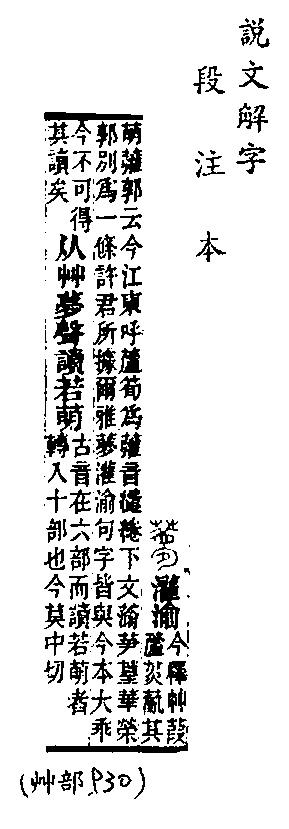 說文解字
段注本
灌渝
今釋艸葭
蘆菼薍其
萌虇郭云今江東呼蘆筍爲虇音繾綣下文蕍芛葟華榮
郭別爲一條許君所據爾雅夢灌渝句字皆與今本大乖
今不可得
其讀矣
从艸夢聲讀若萌
古音在六部而讀若萌者
轉入十部也今莫中切
(艸部P30)